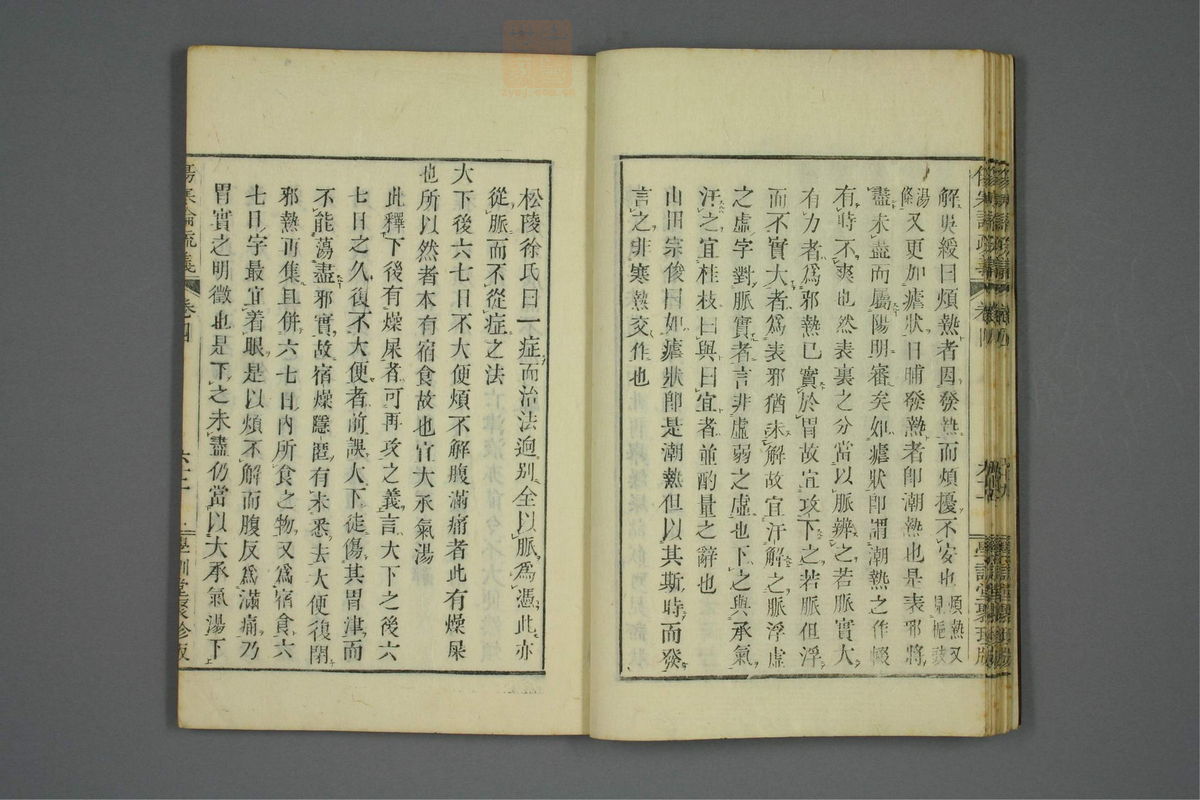 解吳緩曰煩熱者因發熱而煩擾不安也煩熱又
見梔豉
湯條又更如瘧狀日晡發熱者卽潮熱也是表邪將
盡未盡而屬陽明審矣如瘧狀卽謂潮熱之作輟
有時不爽也然表裏之分當以脈辨之若脈實大
有力者爲邪熱已實於胃故宜攻下之若脈但浮
而不實大者爲表邪猶未解故宜汗解之脈浮虛
之虛字對脈實者言非虛弱之虛也下之與承氣
汗之宜桂枝曰與曰宜者並酌量之辭也
山田宗俊曰如瘧狀卽是潮熱但以其斯時而發
言之非寒熱交作也
松陵徐氏曰一症而治法迥别全以脈爲憑此亦
從脈而不從症之法
大下後六七日不大便煩不解腹滿痛者此有燥屎
也所以然者本有宿食故也宜大承氣湯
此釋下後有燥屎者可再攻之義言大下之後六
七日之久復不大便者前誤大下徒傷其胃津而
不能蕩盡邪實故宿燥隱匿有未悉去大便復閉
邪熱再集且併六七日内所食之物又爲宿食六
七日字最宜着眼是以煩不解而腹反爲滿痛乃
胃實之明徵也是下之未盡仍當以大承氣湯下
傷寒論疏義
卷四
六十二
學訓堂聚珍版